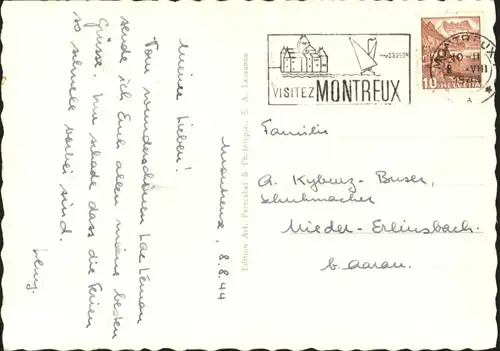 Montreux, 8.8.44
Meine Lieben!
Vom wunderschönen Lac Léman
sende ich Euch allen meine besten
Grüsse. Nur schade dass die Ferien
so schnell vorbei sind.
Edition Art. Perrochet & Phototypie, S. A. Lausanne
VISITEZ MONTREUX
MONTREUX
10
HELVETIA
Familie
A. Kyburz-Buser,
Schuhmacher
Nieder-Erlinsbach
b. Aarau.